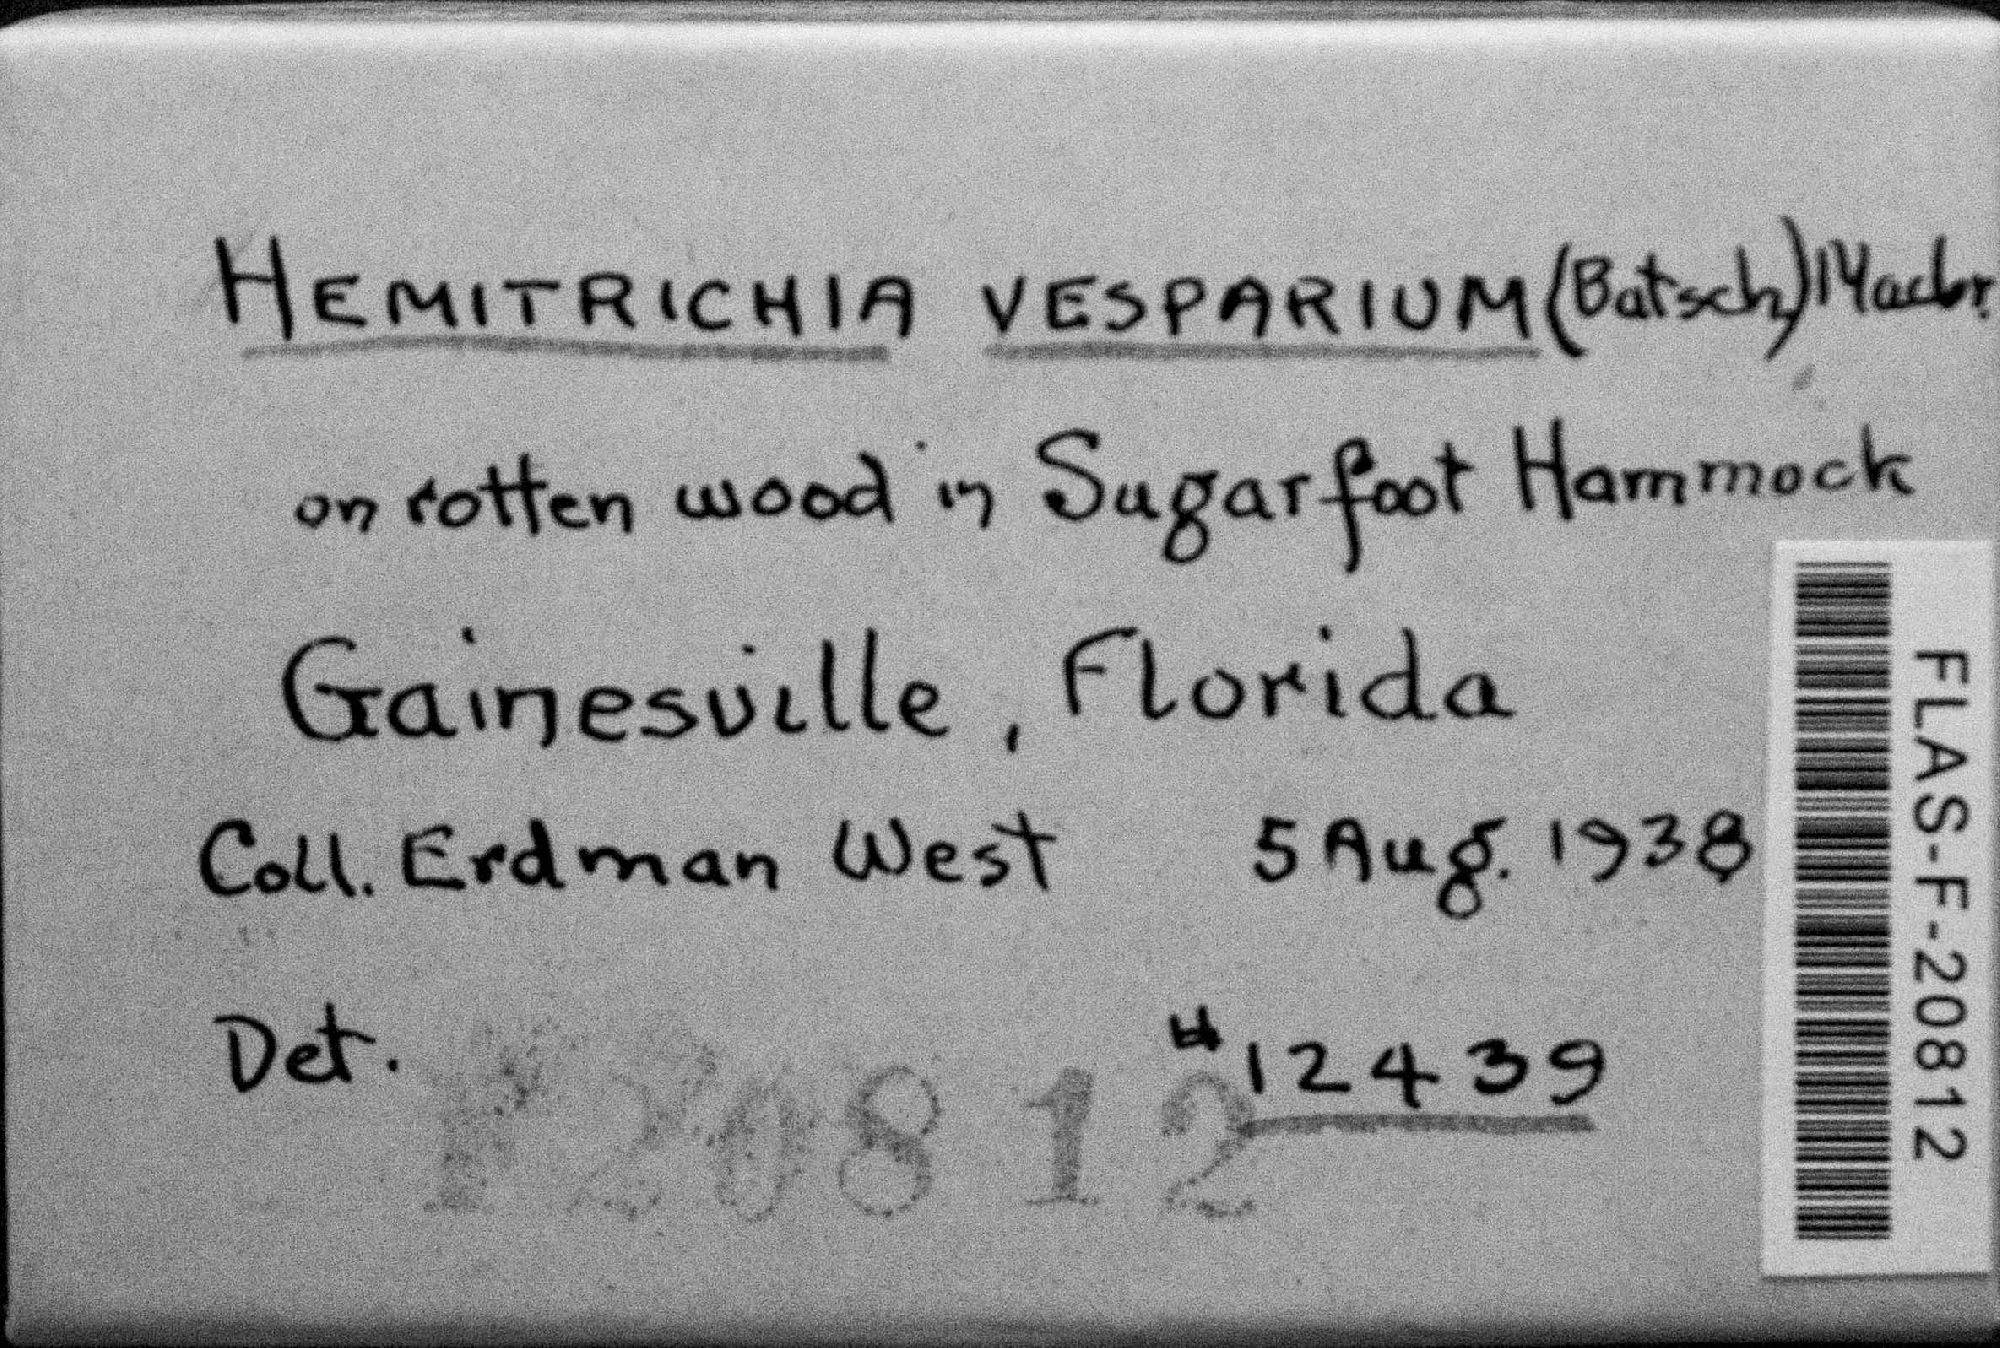 HEMITRICHIA VESPARIUM (Batsch) Macbr.
on rotten wood in Sugarfoot Hammock
Gainesville, Florida
Coll. Erdman West 5 Aug. 1938
Det. #12439
F20812
FLAS-F-20812